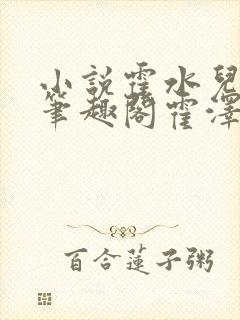 小說霍水兒
筆趣閣霍澤
百合蓮子粥